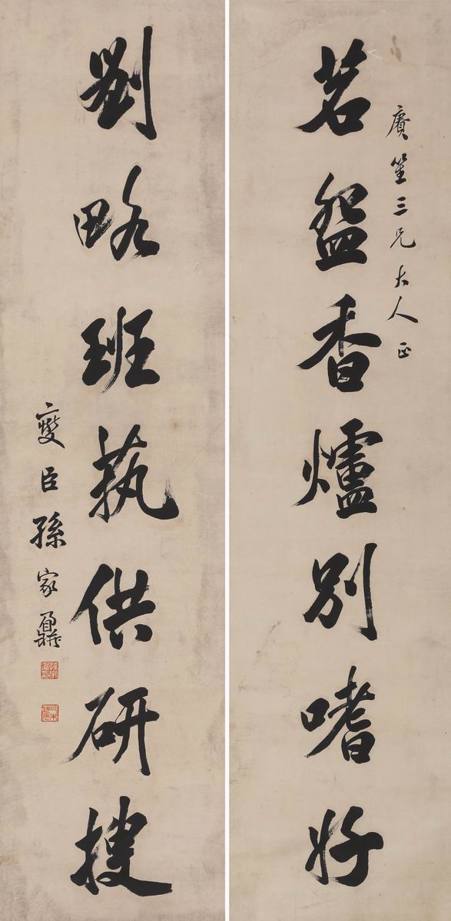 賡笙三兄大人正
茗盌香爐別嗜好
劉略班埶供研搜
燮臣孫家鼐